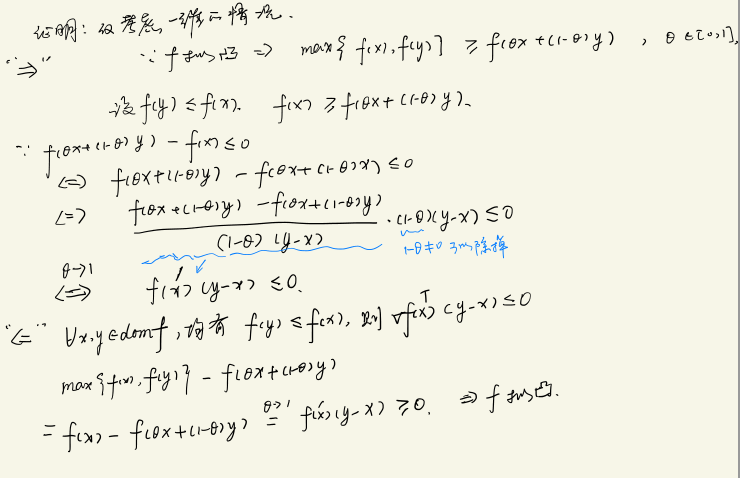 证明：仅考虑一维的情况.
"⇒" ∵ f 拟凸 ⇒ max{f(x), f(y)} ≥ f(θx+(1-θ)y) , θ∈[0,1],
设 f(y) ≤ f(x). f(x) ≥ f(θx+(1-θ)y).
∵ f(θx+(1-θ)y) - f(x) ≤ 0
⇔ f(θx+(1-θ)y) - f(θx+(1-θ)x) ≤ 0
⇔ f(θx+(1-θ)y) - f(θx+(1-θ)y) / (1-θ)(y-x) · (1-θ)(y-x) ≤ 0
1-θ≠0 可以除掉
θ→1 ⇔ f'(x)(y-x) ≤ 0.
"⇐" ∀x,y∈domf, 均有 f(y) ≤ f(x), 则 ∇f(x)ᵀ(y-x) ≤ 0
max{f(x), f(y)} - f(θx+(1-θ)y)
= f(x) - f(θx+(1-θ)y) θ→1 = f'(x)(y-x) ≥ 0. ⇒ f 拟凸.